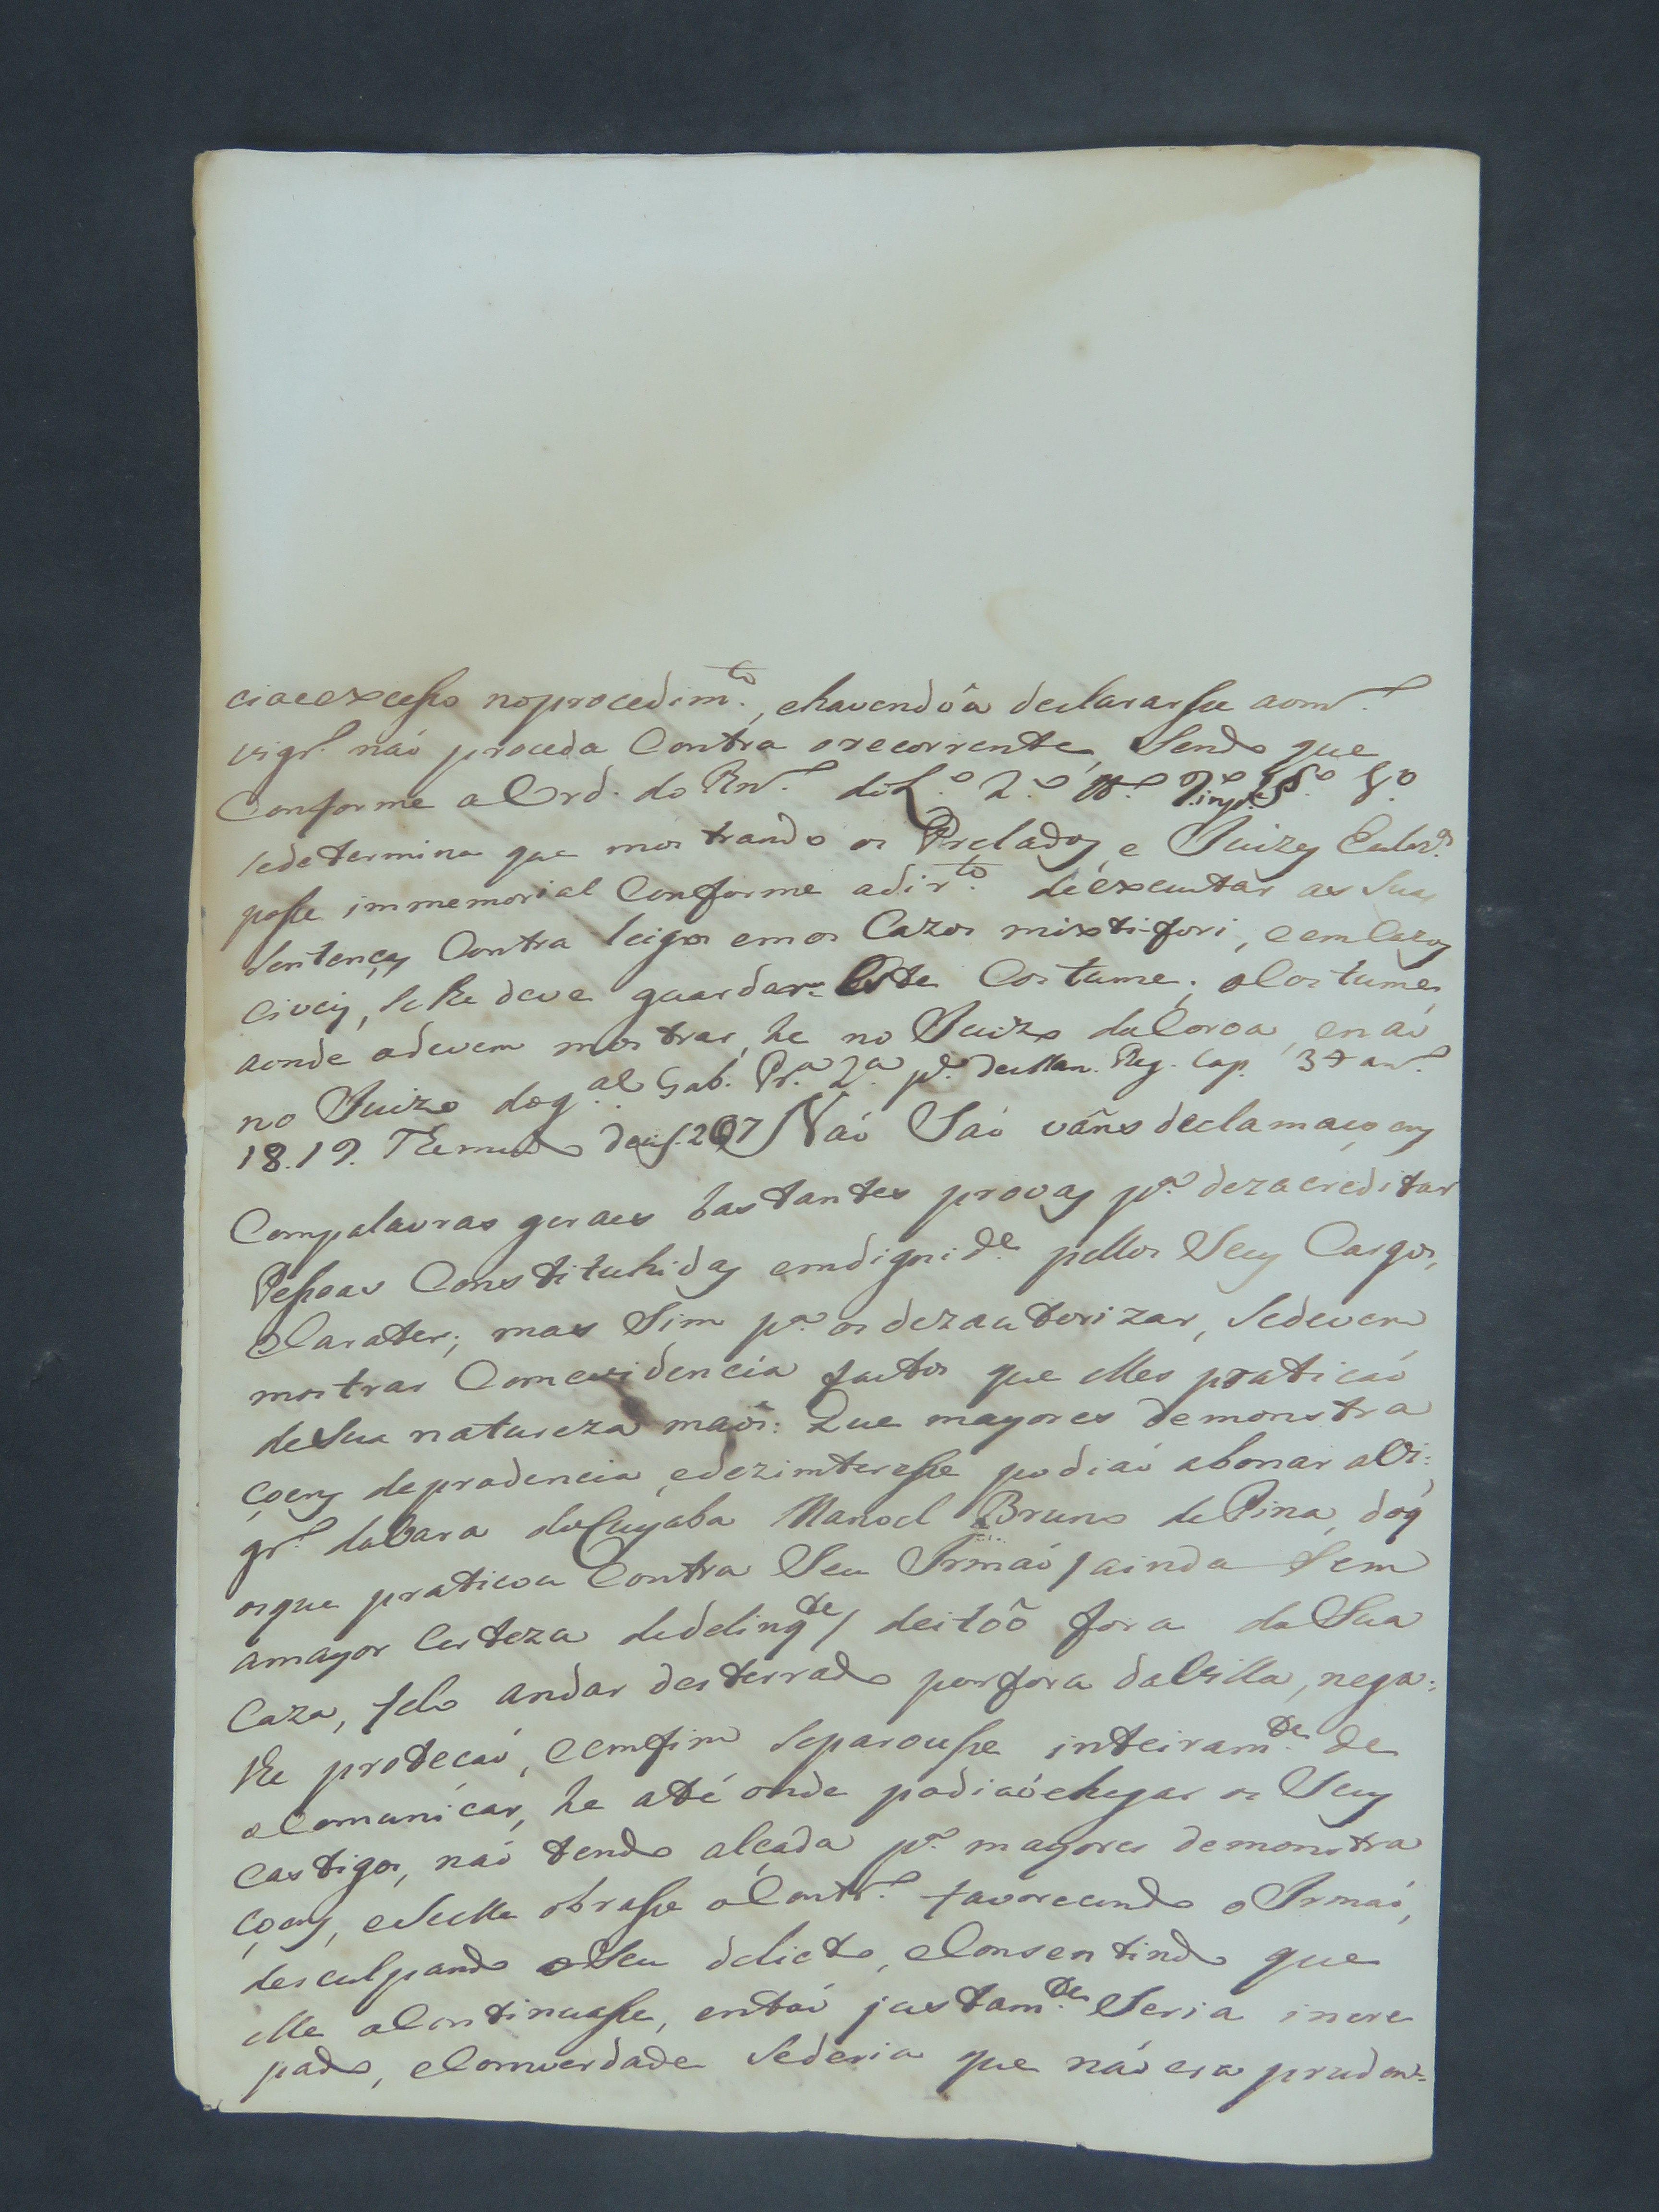 ciaeexcesso noprocedim.to, ehavendôa declararsse aom.mo
vigr.o naó proceda Contra orecorrente, Sendo que
Conforme aOrd. do Rn.o do L.o 2.o tt.o 1.o §.o
sedetermina que mostrando os Prelados, e Juizes Ecles.os
posse immemorial Conforme adir.to deexecutar as Suas
Sentenças Contra leigos emos Cazos mixti-fori, eemCazos
Civeis, selhe deve guardar Este Costume; oCostume,
aonde odevem mostrar, he no Juizo daCoroa, enaó
no Juizo dog.al Gab. Pr.a 2.a p.e deMan. Reg. Cap. 34 an.o
18.19. Themudo decis. 207 Naó Saó vãns declamaçoens
Compalavras geraes bastantes provas p.a dezacreditar
Pessoas Constituhidas emdignid.e pellos Seus Cargos,
eCarater; mas Sim p.a os dezautorizar, Sedevem
mostrar Comevidencia factos que elles praticaó
deSua natureza maós: Que mayores demonstra
çoens deprudencia, edezimteresse podiaó abonar aVi:
gr.o daVara doCuyaba Manoel Bruno de Pina, doq
osque praticou Contra Seu Irmaó / ainda Sem
amayor Certeza dedelinq.te / deitoô fora da Sua
Caza, felo andar desterrado porfora daVilla, nega:
lhe proteçaó, eemfim Separousse inteiram.te de
oComunicar, he até onde podiaóchegar os Seus
Castigos, naó tendo alçada p.a mayores demonstra
çoens, eSeelle obrasse oContr.o favorecendo oIrmaó,
desculpando oSeu delicto, eConsentindo que
elle oContinuasse, entaó justam.te Seria incre
pado, eComverdade Sederia que naó era pruden: